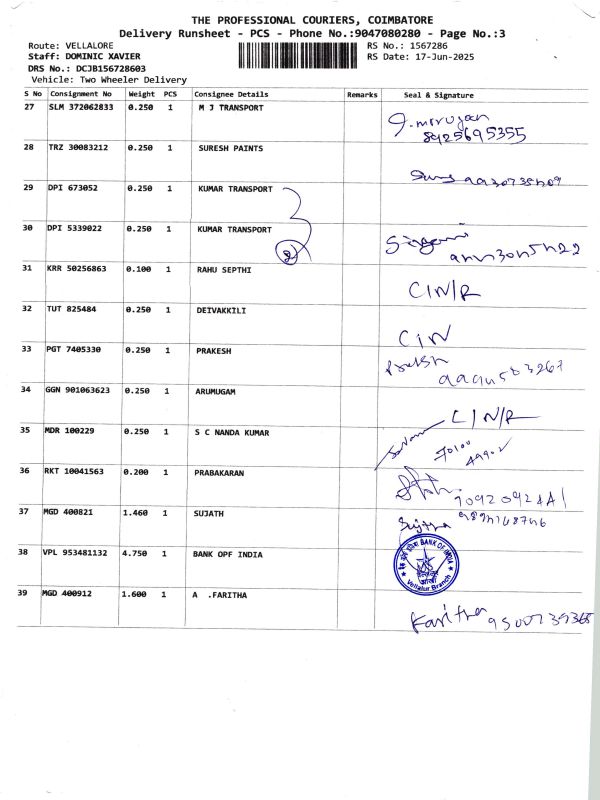 THE PROFESSIONAL COURIERS, COIMBATORE
Delivery Runsheet - PCS - Phone No.:9047080280 - Page No.:3
Route: VELLALORE RS No.: 1567286
Staff: DOMINIC XAVIER RS Date: 17-Jun-2025
DRS No.: DCJB156728603
Vehicle: Two Wheeler Delivery
S No Consignment No Weight PCS Consignee Details Remarks Seal & Signature
27 SLM 372062833 0.250 1 M J TRANSPORT
8925695355
28 TRZ 30083212 0.250 1 SURESH PAINTS
29 DPI 673052 0.250 1 KUMAR TRANSPORT
30 DPI 5339022 0.250 1 KUMAR TRANSPORT
2
31 KRR 50256863 0.100 1 RAHU SEPTHI
C/N/R
32 TUT 825484 0.250 1 DEIVAKKILI
C/N
33 PGT 7405330 0.250 1 PRAKESH
34 GGN 901063623 0.250 1 ARUMUGAM
C/N/R
35 MDR 100229 0.250 1 S C NANDA KUMAR
36 RKT 10041563 0.200 1 PRABAKARAN
37 MGD 400821 1.460 1 SUJATH
Sujitha
38 VPL 953481132 4.750 1 BANK OPF INDIA
BANK OF INDIA
Vellalur Branch
39 MGD 400912 1.600 1 A .FARITHA
Faritha 9500739368